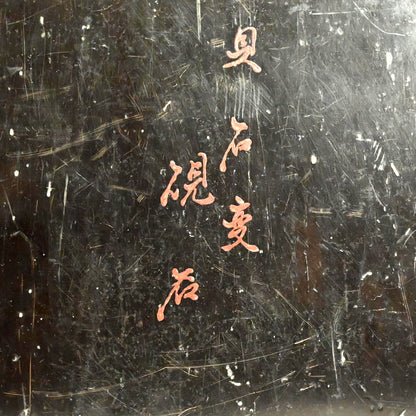 貝石变
硯石